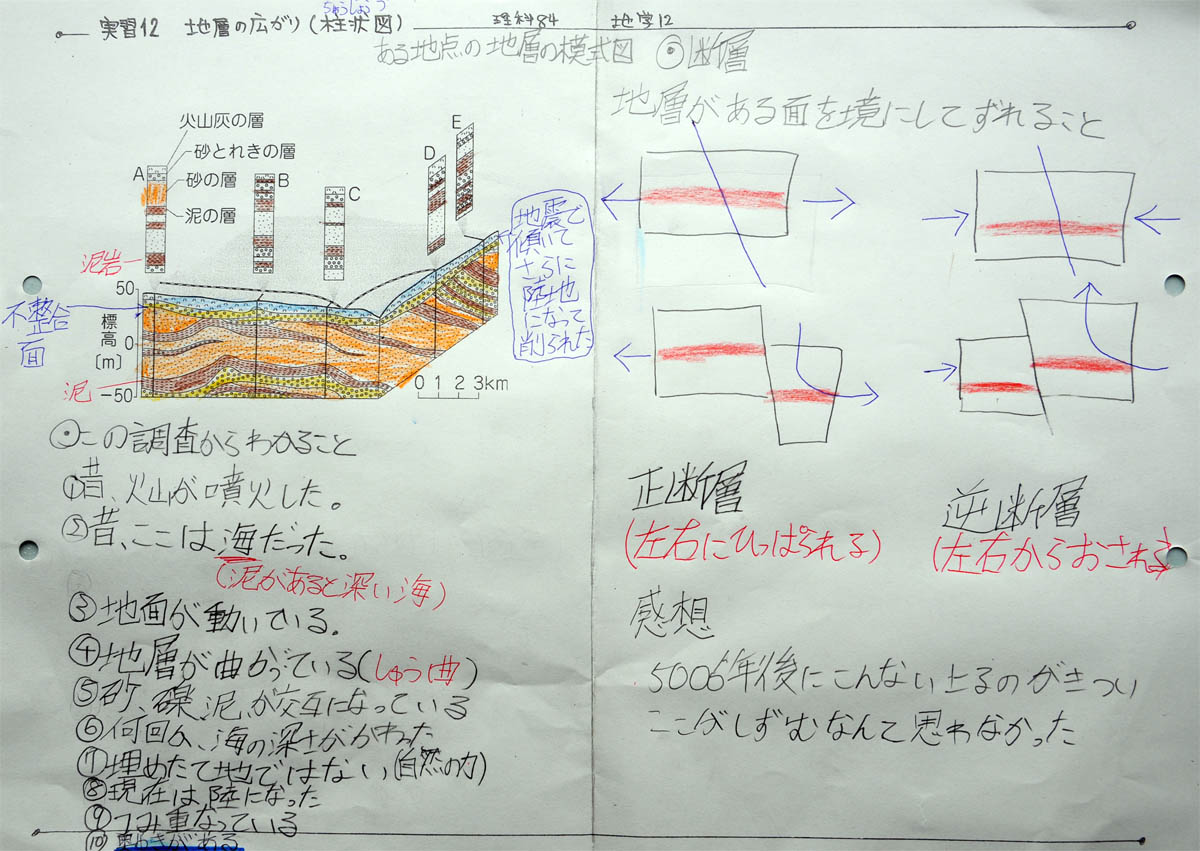 実習12 地層の広がり(柱状図)
ちゅうじょうず
理科84 地学12
ある地点の地層の模式図
火山灰の層
砂とれきの層
砂の層
泥の層
A
B
C
D
E
泥岩
不整合
面
泥
50
標高
0
[m]
-50
0 1 2 3km
地震で
傾いて
さらに
陸地
になって
削られた
◎この調査からわかること
①昔、火山が噴火した。
②昔、ここは海だった。
(泥があると深い海)
③地面が動いている。
④地層が曲がっている(しゅう曲)
⑤砂、礫、泥、が交互になっている
⑥何回も、海の深さがかわった
⑦埋めたて地ではない(自然の力)
⑧現在は陸になった
⑨つみ重なっている
⑩動きがある
◎断層
地層がある面を境にしてずれること
正断層
(左右にひっぱられる)
逆断層
(左右からおされる)
感想
5006年後にこんない上るのがきつい
ここがしずむなんて思わなかった